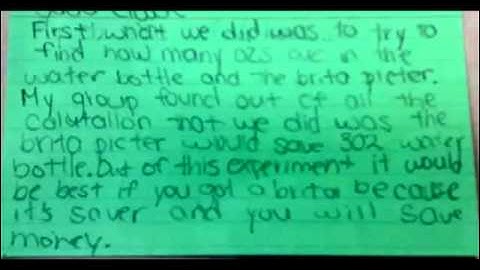 First what we did was to try to
find how many ozs are in the
water bottle and the brita picter.
My group found out of all the
calutation not we did was the
brita picter would save 302 water
bottle. Out of this experiment it would
be best if you got a brita because
it's saver and you will save
money.